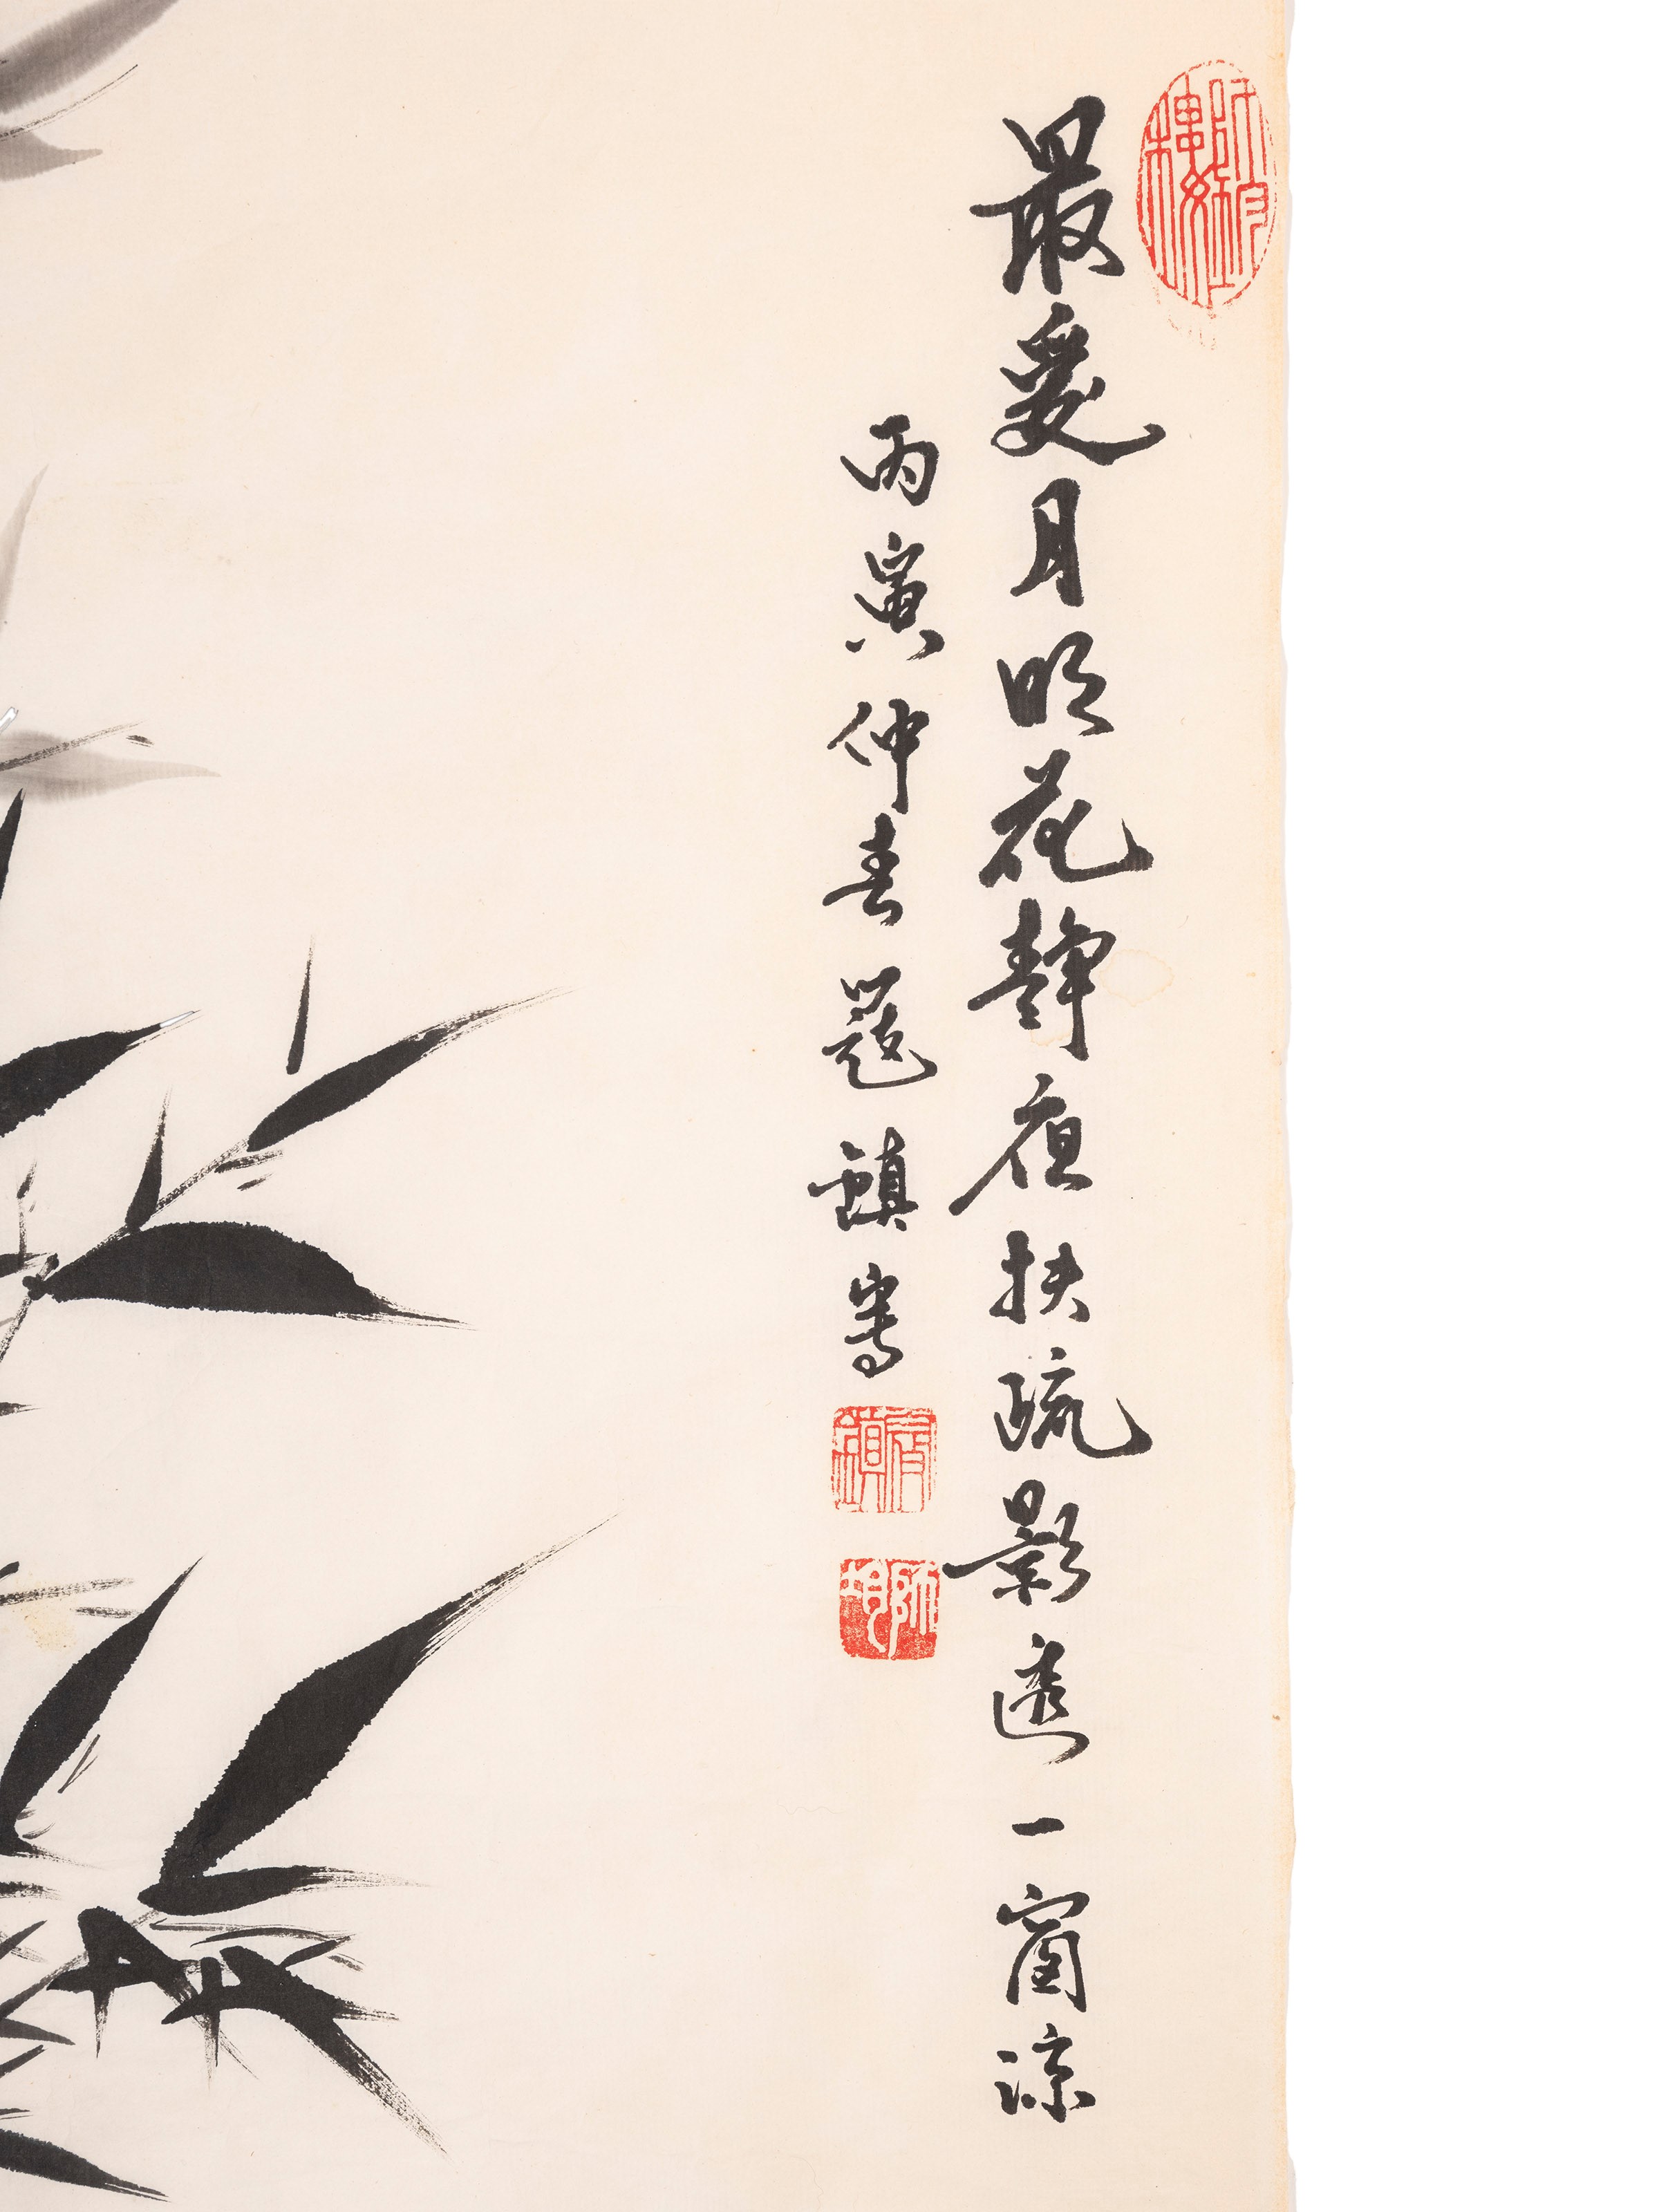 最愛月明花靜夜扶疏影透一窗涼
丙寅仲春寇鎮寫